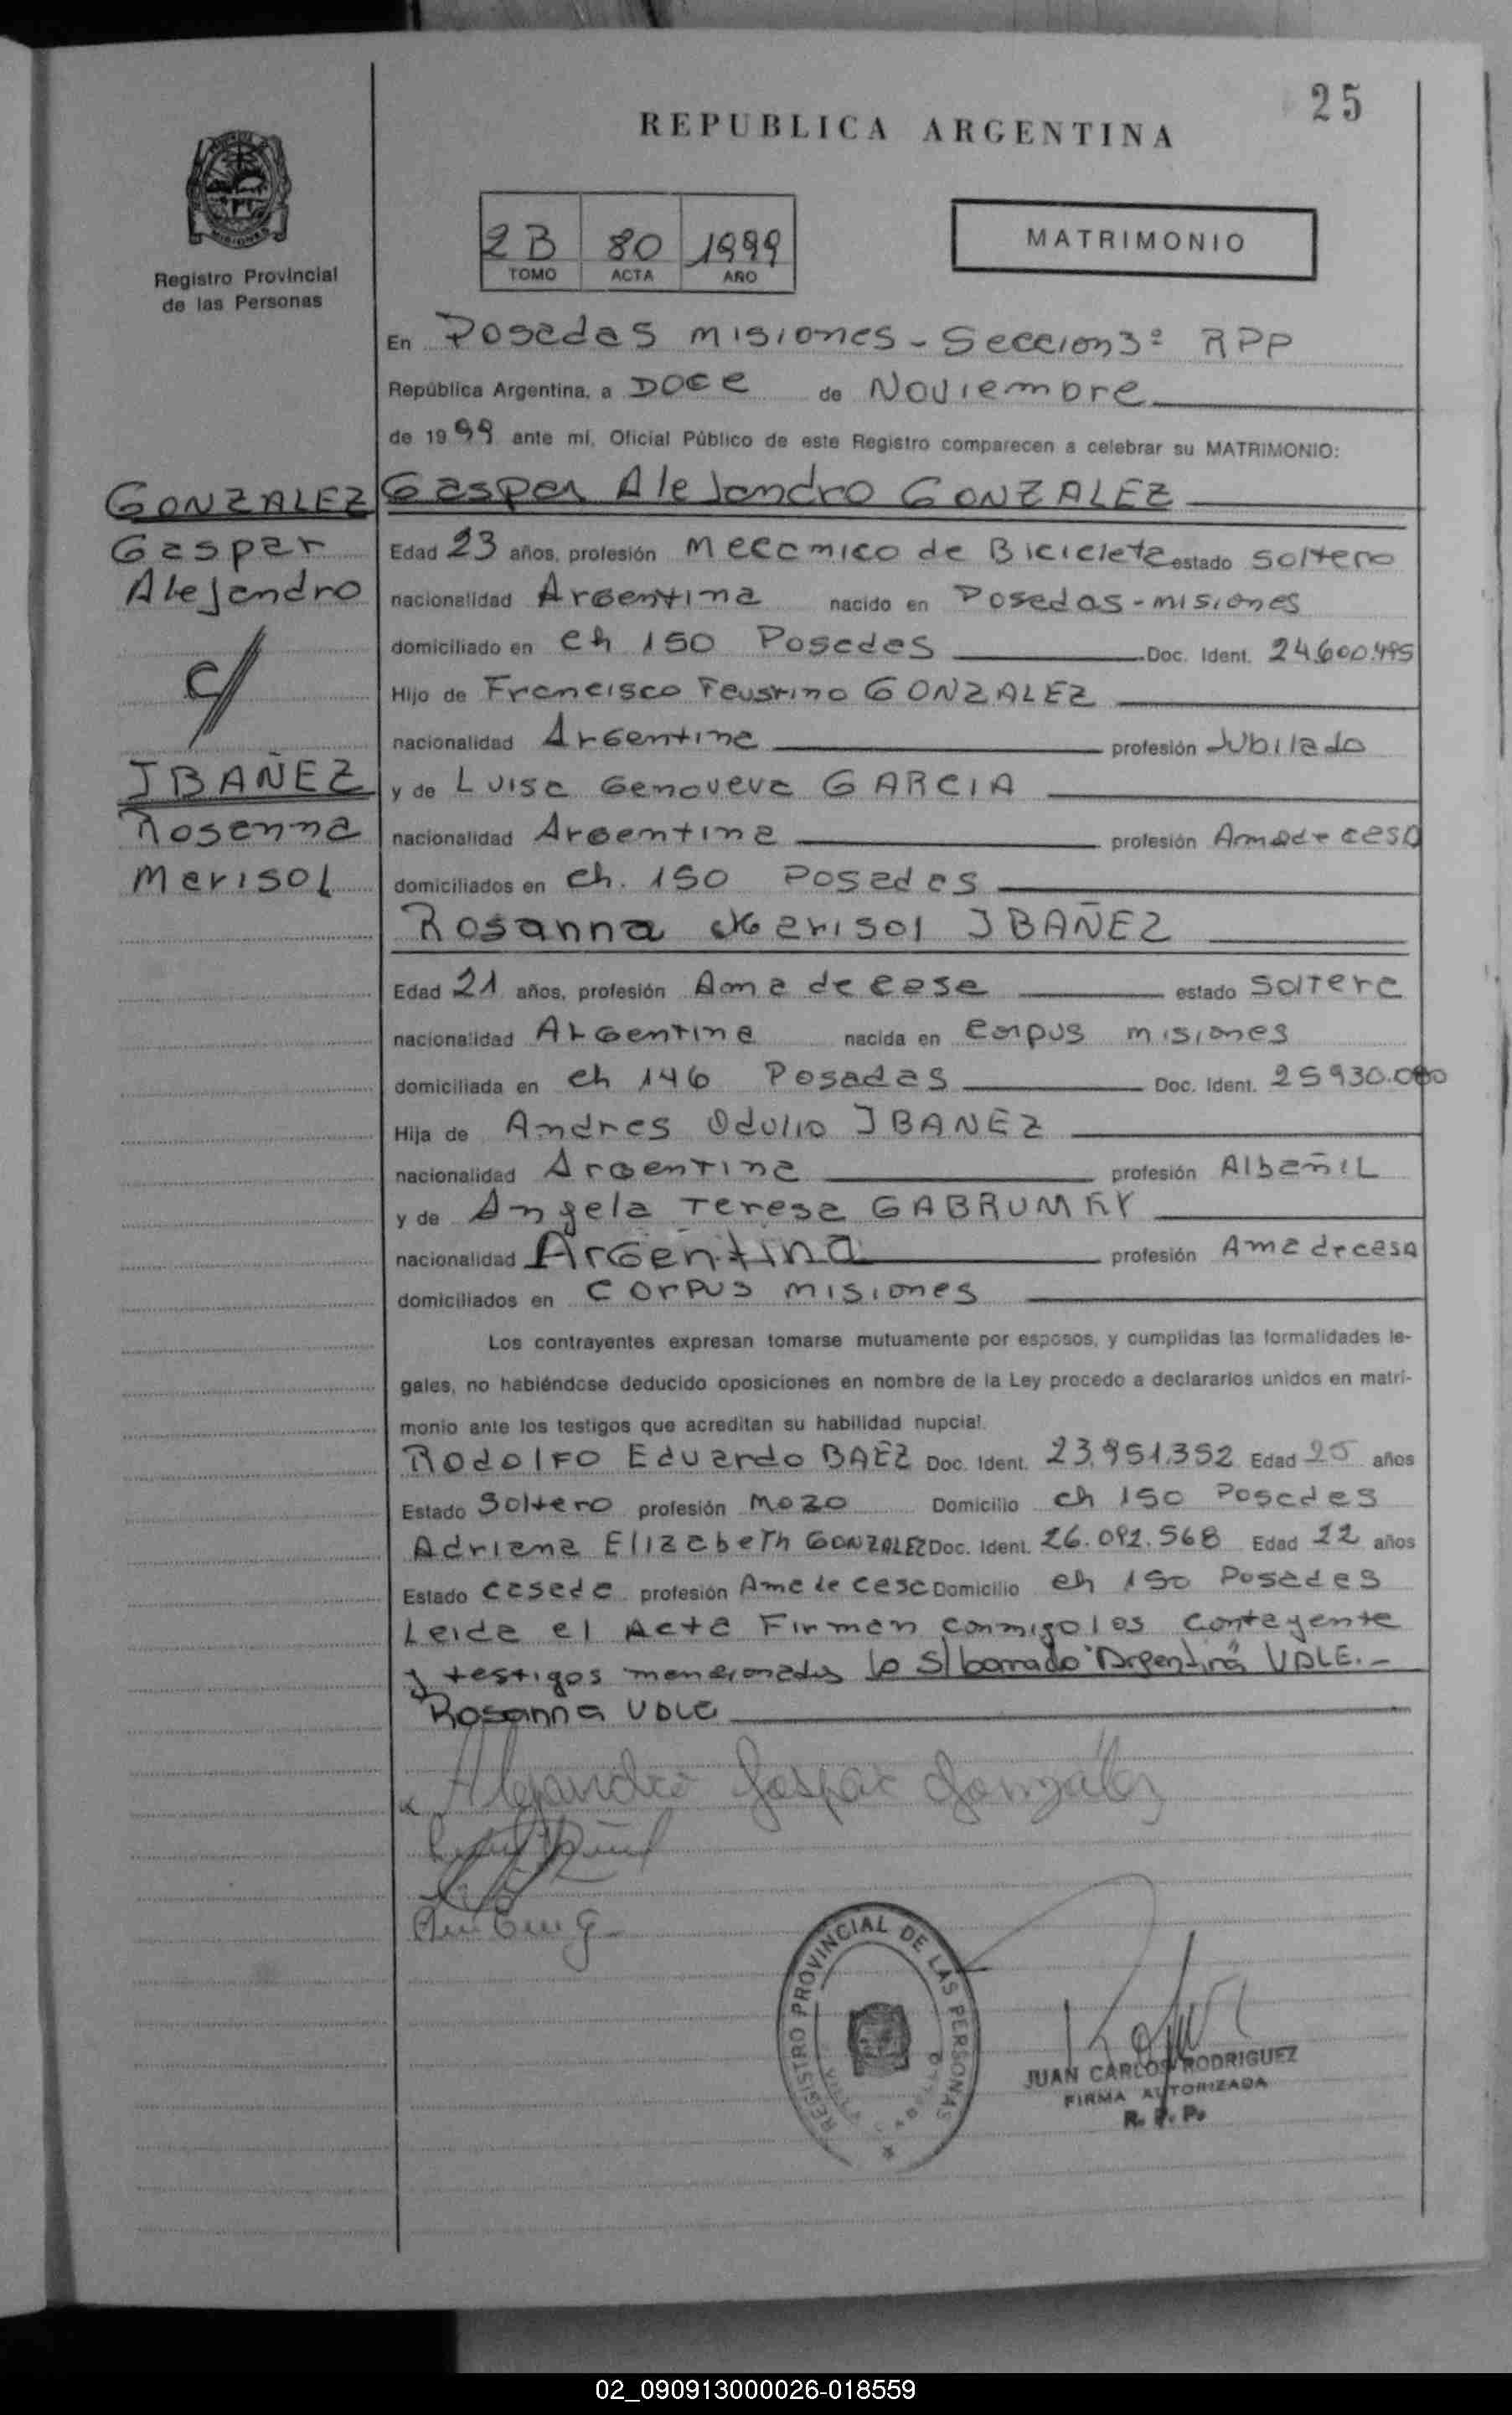 25
REPUBLICA ARGENTINA
MISIONES
Registro Provincial
de las Personas
2B 80 1999
TOMO ACTA AÑO
MATRIMONIO
En Posadas misiones - Seccion 3º RPP
República Argentina, a DOCE de Noviembre
de 1999 ante mí, Oficial Público de este Registro comparecen a celebrar su MATRIMONIO:
GONZALEZ
Gaspar
Alejandro
c/
IBAÑEZ
Rosanna
Marisol
Gaspar Alejandro GONZALEZ
Edad 23 años, profesión Mecanico de Bicicleta estado Soltero
nacionalidad Argentina nacido en Posadas - misiones
domiciliado en ch 150 Posadas Doc. Ident. 24.600.495
Hijo de Francisco Faustino GONZALEZ
nacionalidad Argentina profesión Jubilado
y de Luisa Genoveva GARCIA
nacionalidad Argentina profesión Ama de casa
domiciliados en ch. 150 Posadas
Rosanna Marisol IBAÑEZ
Edad 21 años, profesión Ama de casa estado Soltera
nacionalidad Argentina nacida en Corpus misiones
domiciliada en ch 146 Posadas Doc. Ident. 25930.080
Hija de Andres Odulio IBANEZ
nacionalidad Argentina profesión Albañil
y de Angela Teresa
nacionalidad Argentina profesión Ama de casa
domiciliados en Corpus misiones
Los contrayentes expresan tomarse mutuamente por esposos, y cumplidas las formalidades le-
gales, no habiéndose deducido oposiciones en nombre de la Ley procedo a declararlos unidos en matri-
monio ante los testigos que acreditan su habilidad nupcial.
RODOLFO Eduardo BAEZ Doc. Ident. 23.951.352 Edad 25 años
Estado Soltero profesión Mozo Domicilio ch 150 Posadas
Adriana Elizabeth GONZALEZ Doc. Ident. 26.092.568 Edad 22 años
Estado casada profesión Ama de casa Domicilio ch 150 Posadas
Leida el Acta Firman conmigo los contayente
y testigos mencionados lo S/ borrado "Argentina" VALE.-
Rosanna VALE
Alejandro Gaspar Gonzalez
REGISTRO PROVINCIAL DE LAS PERSONAS
JUAN CARLOS RODRIGUEZ
FIRMA AUTORIZADA
R. P. P.
02_090913000026-018559